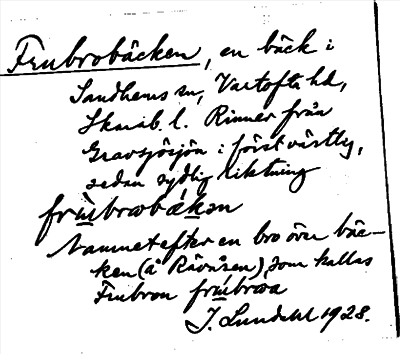 Frubrobäcken, en bäck i
Sandhems sn, Vartofta hd,
Skarab. l. Rinner från
Gravsjösjön i först västlig,
sedan sydlig riktning
frùbrωabǽkən
Namnet efter en bro över bäc-
ken (å Råvåsen), som kallas
Frubron frùbrωa
J. Lundahl 1928.